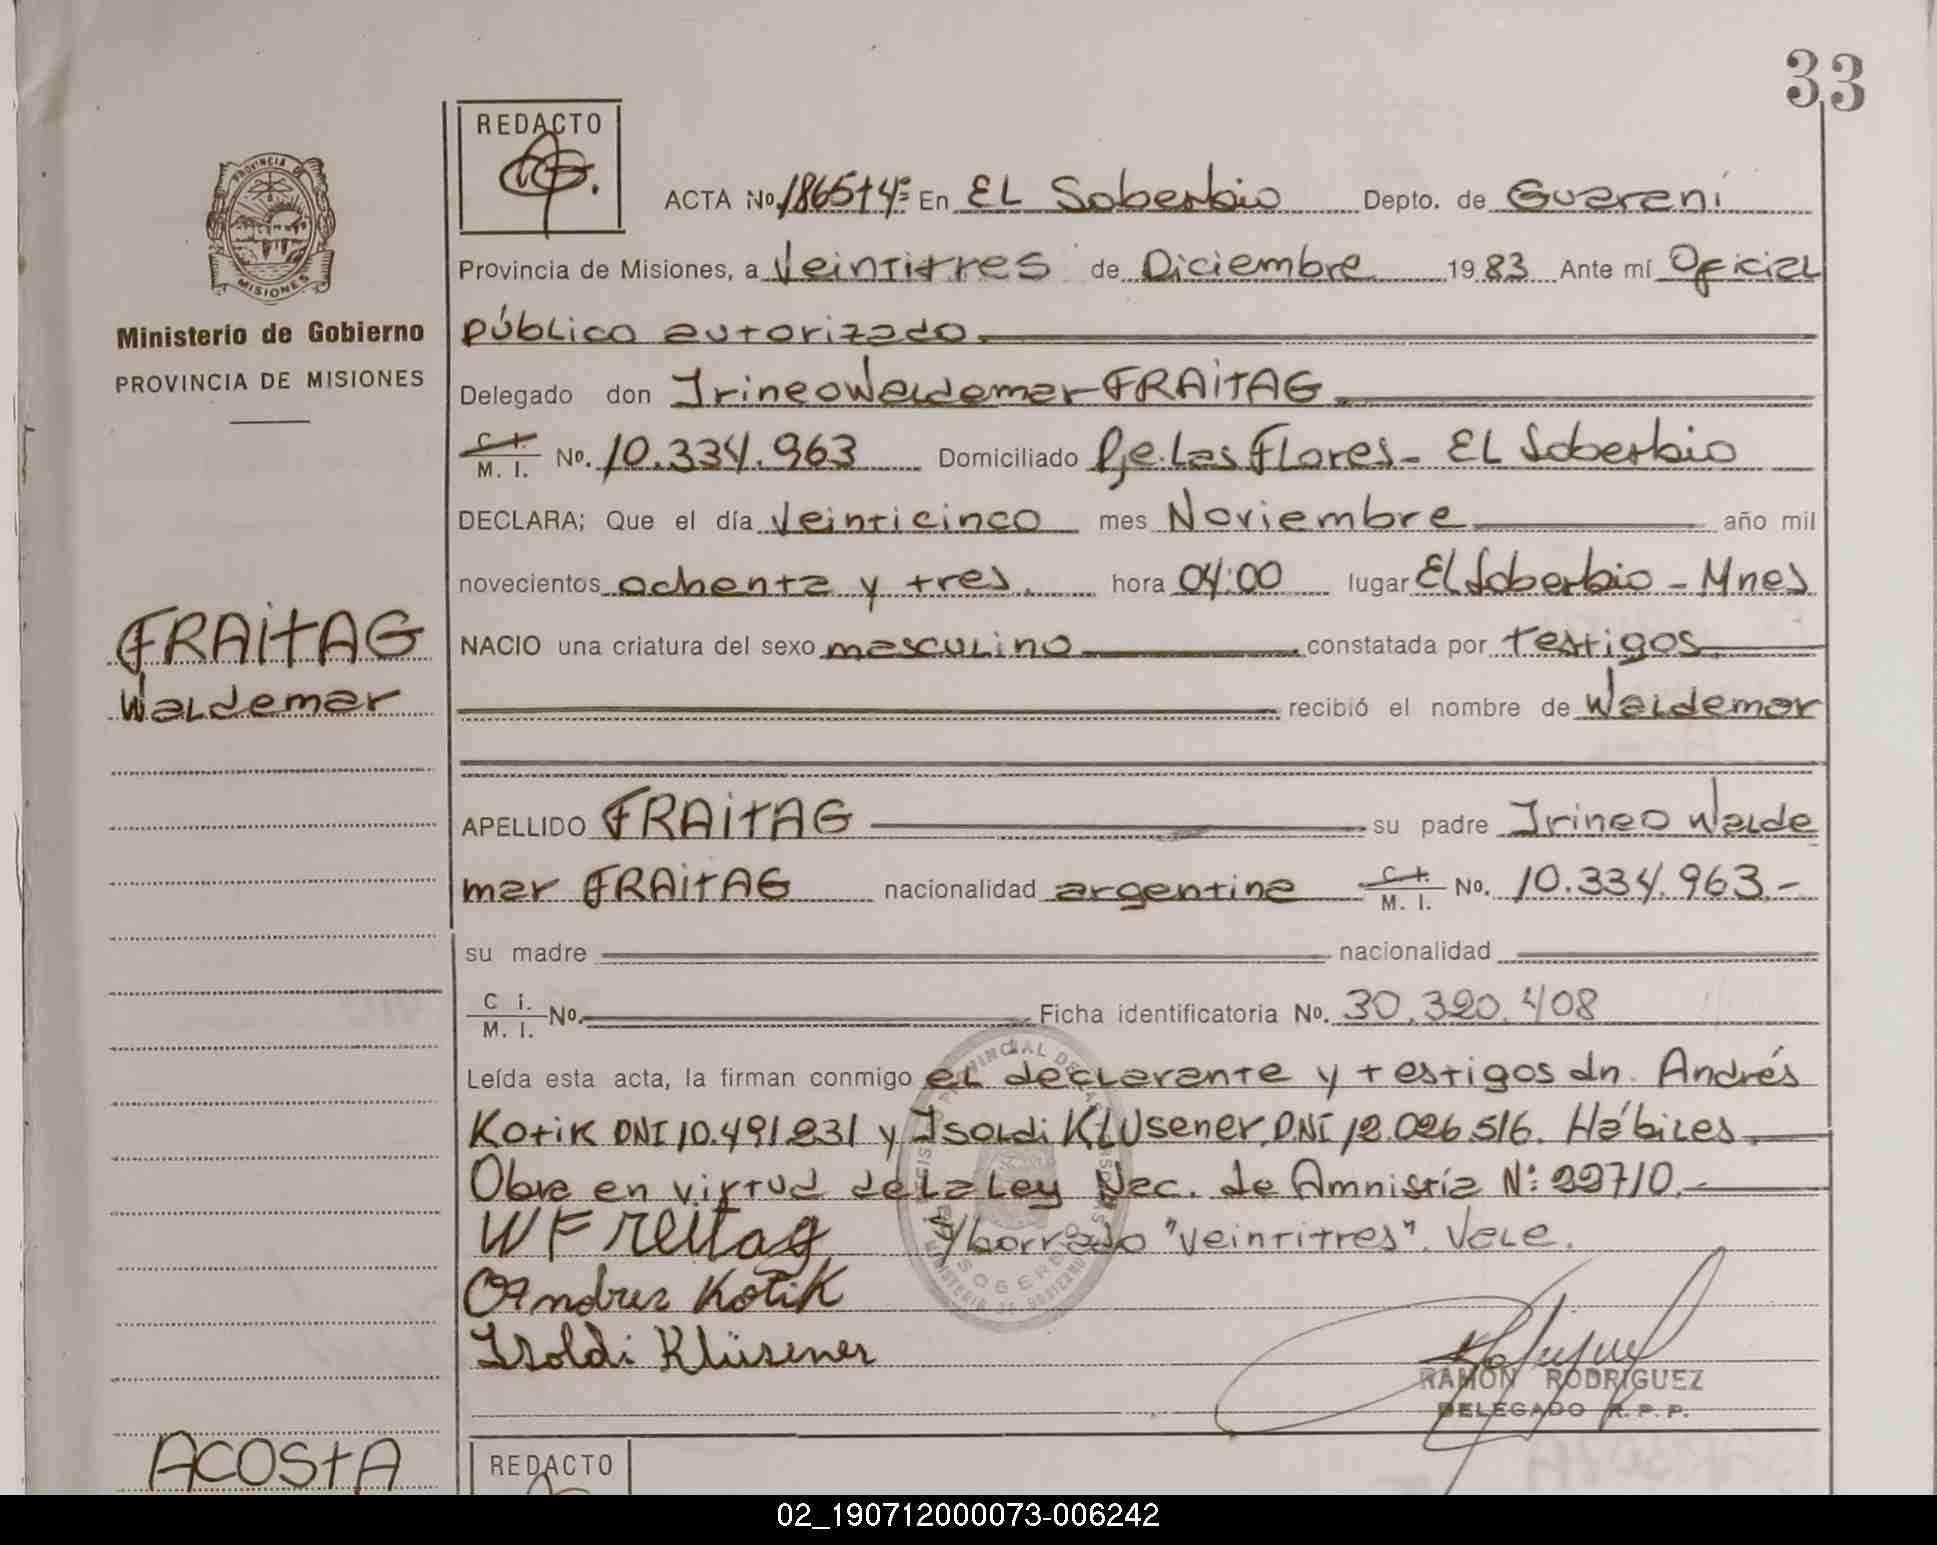 33
REDACTO
ACTA No. 1865 t 4º En EL Soberbio Depto. de Guaraní
Provincia de Misiones, a Veintitres de Diciembre 19 83 Ante mí Oficial
público autorizado
Delegado don Irineo Waldemar FRAITAG
C. I. M. I. No. 10.334.963 Domiciliado Pje. Las Flores - EL Soberbio
DECLARA; Que el día Veinticinco mes Noviembre año mil
novecientos ochenta y tres. hora 04:00 lugar El Soberbio - Mnes
NACIO una criatura del sexo masculino constatada por testigos
recibió el nombre de Waldemar
APELLIDO FRAITAG su padre Irineo Walde
mar FRAITAG nacionalidad argentina C. I. M. I. No. 10.334.963.-
su madre nacionalidad
C I. M. I. No. Ficha identificatoria No. 30.320.408
Leída esta acta, la firman conmigo el declarante y testigos dn. Andrés
Kotik DNI 10.491.231 y Isoldi Klusener, DNI 12.026.516. Hábiles
Obra en virtud de la Ley Nac. de Amnistía Nº: 22710.-
W Freitag S/borrado "veintitres". Vale.
Andres Kotik
Isoldi Klüsener
RAMON RODRIGUEZ
DELEGADO R. P. P.
REDACTO
PROVINCIA DE
MISIONES
Ministerio de Gobierno
PROVINCIA DE MISIONES
FRAITAG
Waldemar
ACOSTA
02_190712000073-006242